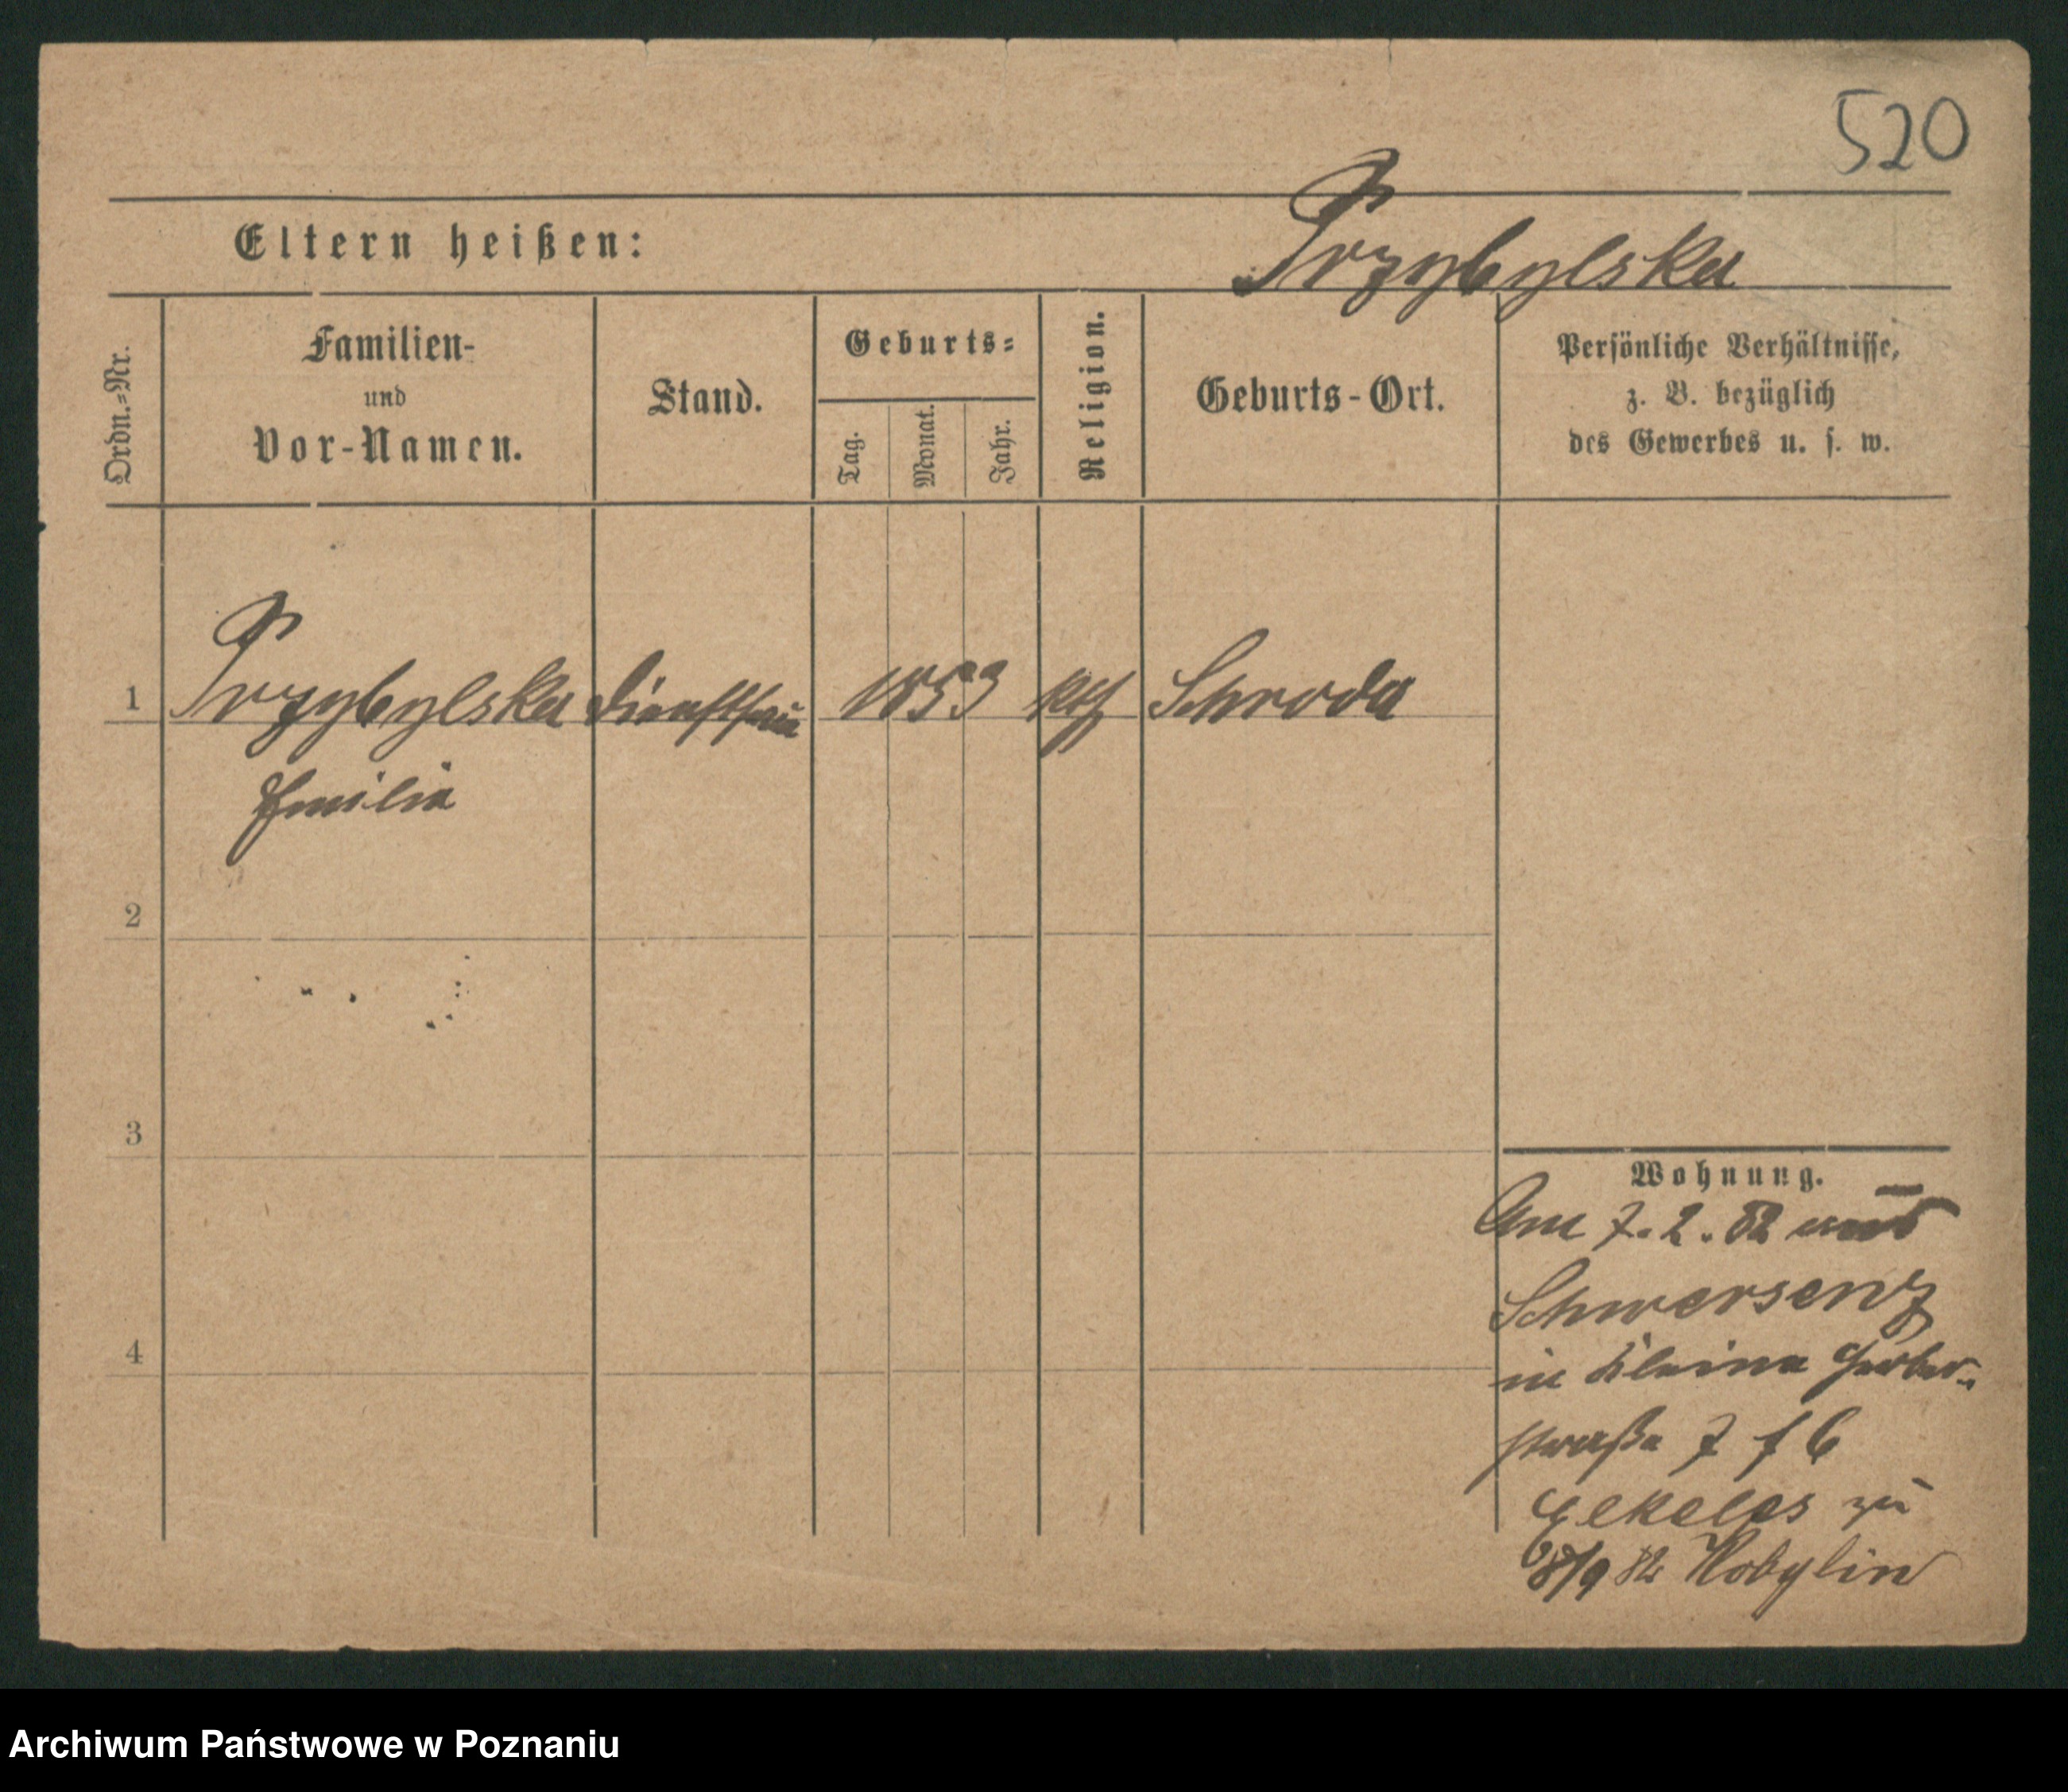 520
Eltern heißen:
Przybylska
Ordn.=Nr.
Familien-
und
Vor-Namen.
Stand.
Geburts=
Tag.
Monat.
Jahr.
Religion.
Geburts-Ort.
Persönliche Verhältnisse,
z. B. bezüglich
des Gewerbes u. s. w.
1 Przybylska 1853 kth Schroda
Emilia
2
3
4
Wohnung.
Am 7.2.82 aus
Schwersenz
in kleine Gerber-
straße 7
zu
82 Kobylin
Archiwum Państwowe w Poznaniu